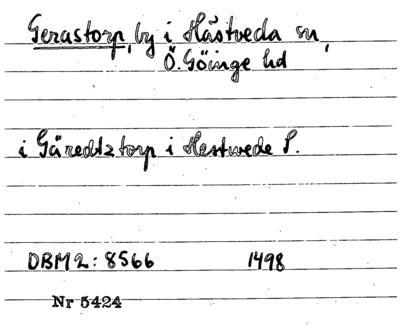 Gerastorp, by i Hästveda sn,
Ö. Göinge hd
i Gäredtztorp i Hestwede S.
DBM 2: 8566 1498
Nr 5424